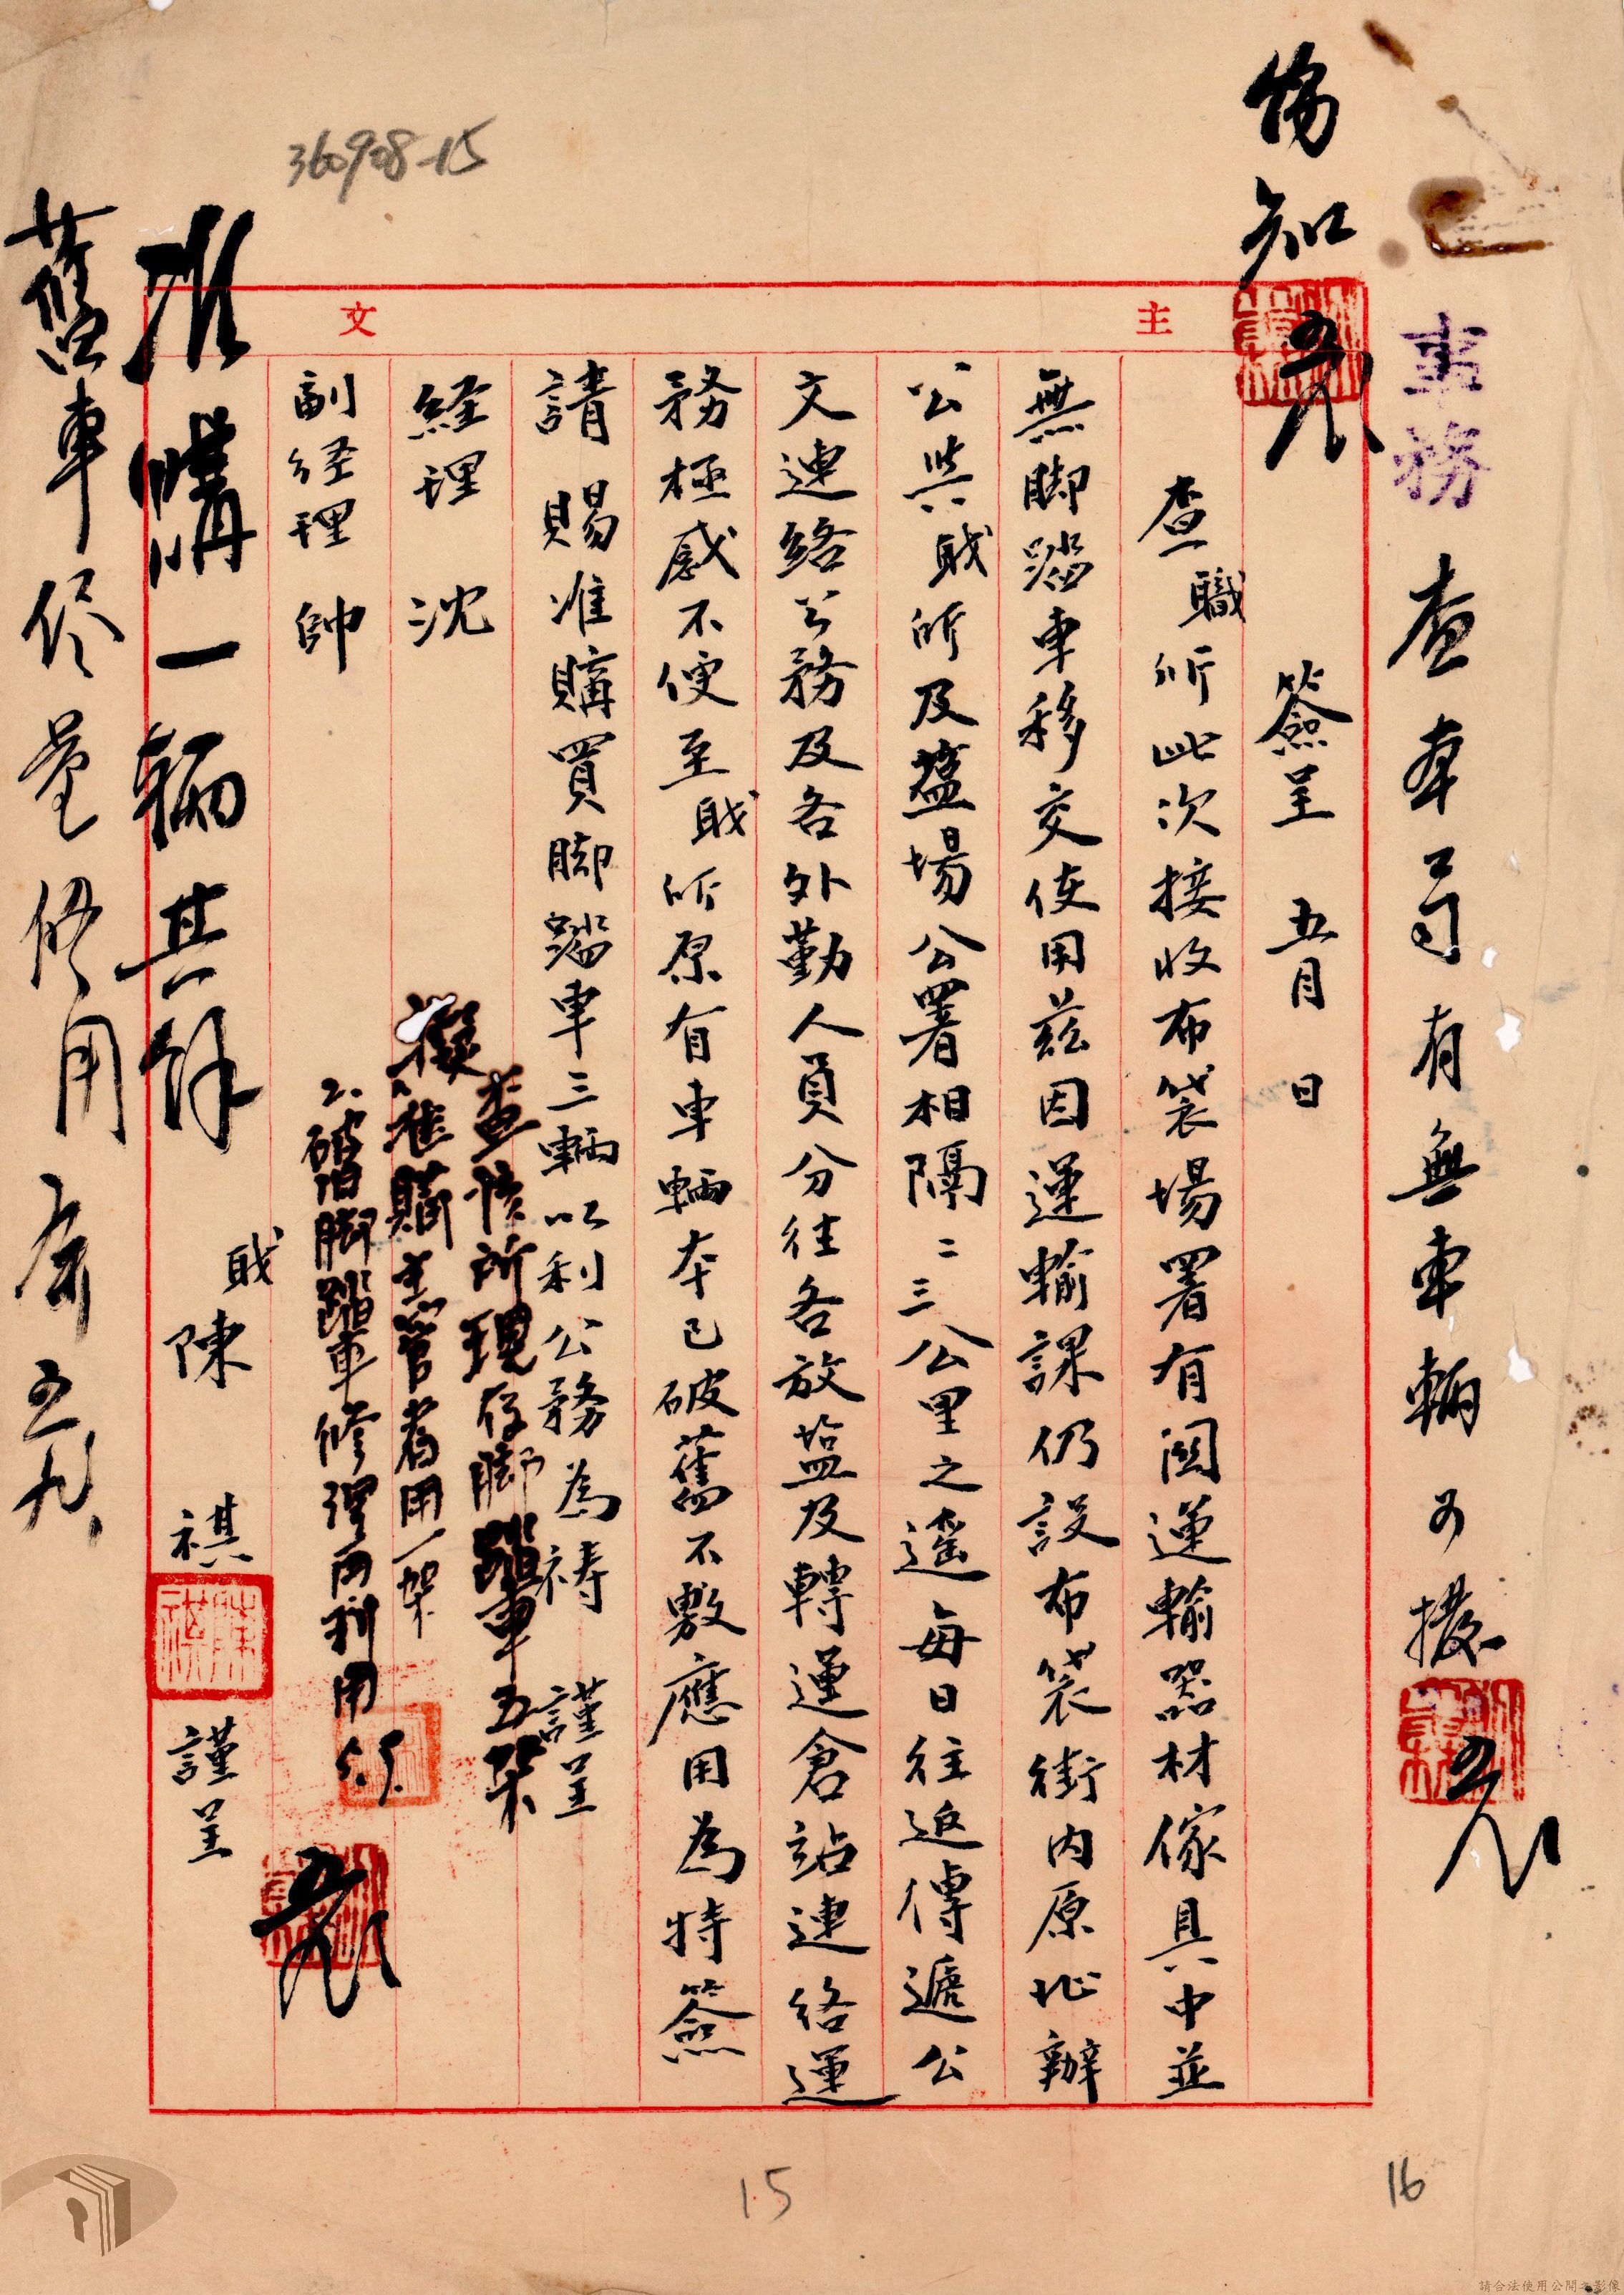 事務 查本司有無車輛可撥
飭知
主 文
簽呈 五月 日
查職所此次接收布袋場署有関運輸器材傢具中並
無脚踏車移交使用茲因運輸課仍設布袋街內原址辦
公與職所及鹽場公署相隔二三公里之遙每日往返傳遞公
文連絡公務及各外勤人員分往各放鹽及轉運倉站連絡運
務極感不便至職所原有車輛本已破舊不敷應用為特簽
請 賜准購買脚踏車三輛以利公務為禱 謹呈
經理 沈
副經理 帥
職 陳 祺 謹呈
查該所現存脚踏車五架
擬 1.准購主管者用一架
2.破旧脚踏車修理再利用
准購一輛其餘
舊車儘量修用
360908-15
15
16
請合法使用公開之影像